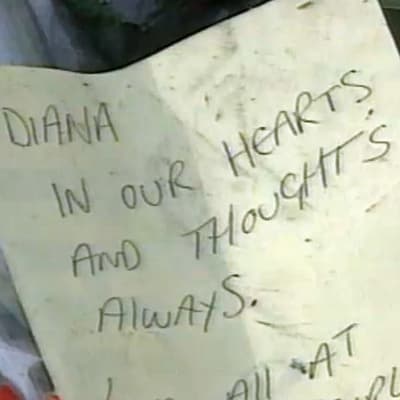 DIANA
IN OUR HEARTS
AND THOUGHTS
ALWAYS.
ALL AT